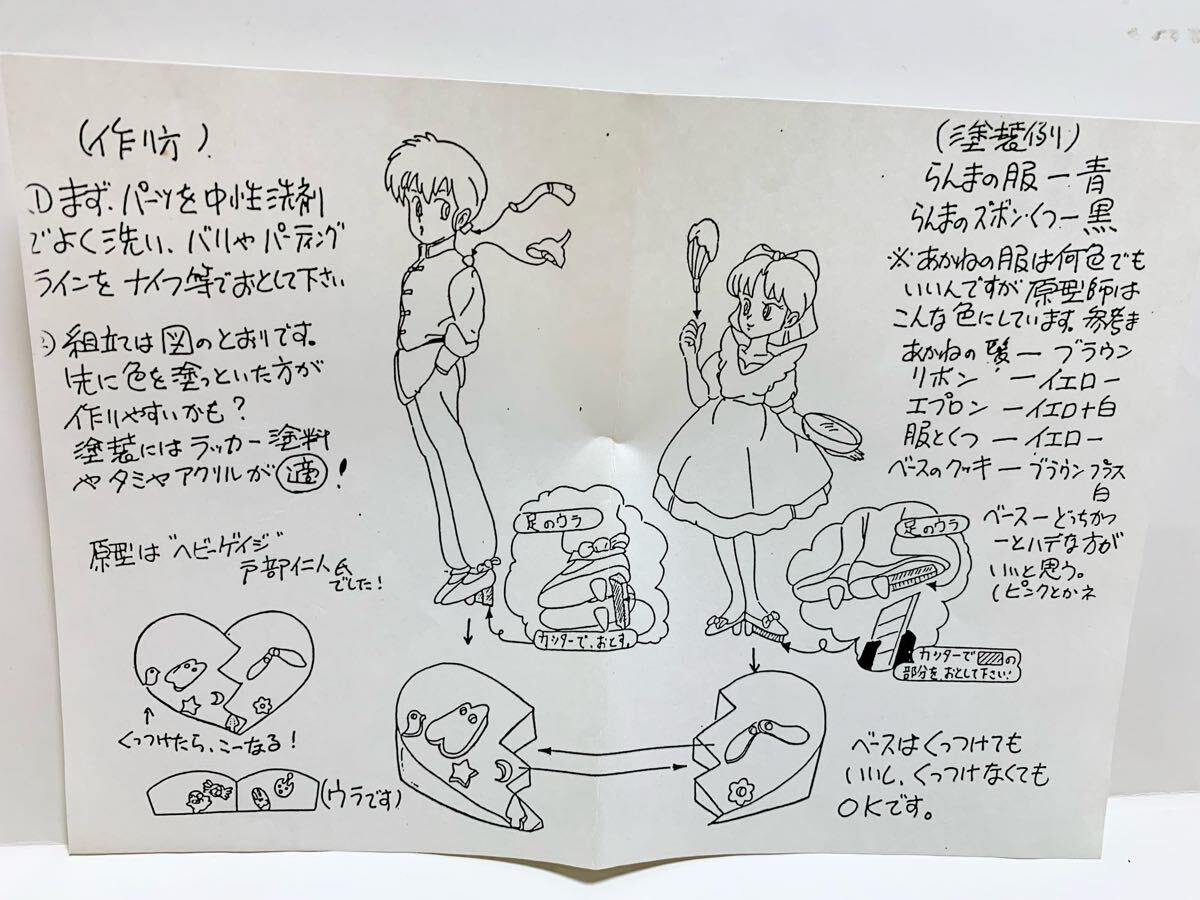 (作り方)
①まず、パーツを中性洗剤
でよく洗い、バリやパーティング
ラインをナイフ等でおとして下さい
②組立ては図のとおりです。
先に色を塗っといた方が
作りやすいかも?
塗装にはラッカー塗料
やタミヤアクリルが適!
原型は"ヘビーゲイジ"
戸部仁人氏
でした!
↑
くっつけたら、こーなる!
(ウラです)
足のウラ
カッターで、おとす。
(塗装例)
らんまの服ー青
らんまのズボン・くつー黒
※あかねの服は何色でも
いいんですが原型師は
こんな色にしています。参考ま
あかねの髪ーブラウン
リボンーイエロー
エプロンーイエロ+白
服とくつーイエロー
ベースのクッキーーブラウンプラス
白
ベースーどっちかつ
ーとハデな方が
いいと思う。
(ピンクとかネ
足のウラ
カッターで の
部分を、おとして下さい!
ベースはくっつけても
いいし、くっつけなくても
OKです。